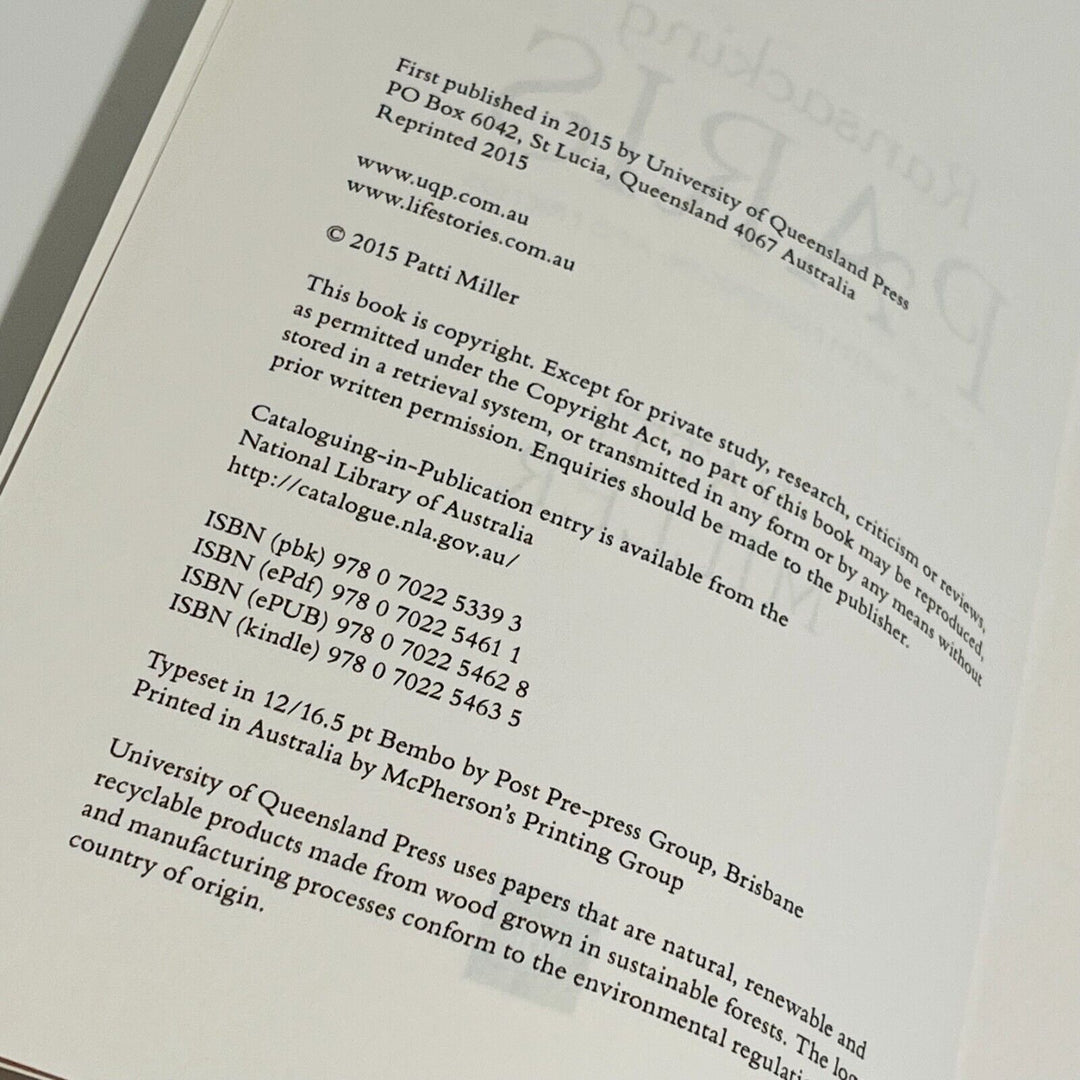 First published in 2015 by University of Queensland Press
PO Box 6042, St Lucia, Queensland 4067 Australia
Reprinted 2015
www.uqp.com.au
www.lifestories.com.au
© 2015 Patti Miller
This book is copyright. Except for private study, research, criticism or reviews,
as permitted under the Copyright Act, no part of this book may be reproduced,
stored in a retrieval system, or transmitted in any form or by any means without
prior written permission. Enquiries should be made to the publisher.
Cataloguing-in-Publication entry is available from the
National Library of Australia
http://catalogue.nla.gov.au/
ISBN (pbk) 978 0 7022 5339 3
ISBN (ePdf) 978 0 7022 5461 1
ISBN (ePUB) 978 0 7022 5462 8
ISBN (kindle) 978 0 7022 5463 5
Typeset in 12/16.5 pt Bembo by Post Pre-press Group, Brisbane
Printed in Australia by McPherson's Printing Group
University of Queensland Press uses papers that are natural, renewable and
recyclable products made from wood grown in sustainable forests. The
and manufacturing processes conform to the environmental
country of origin.
Ransacking
PARIS
MILLER